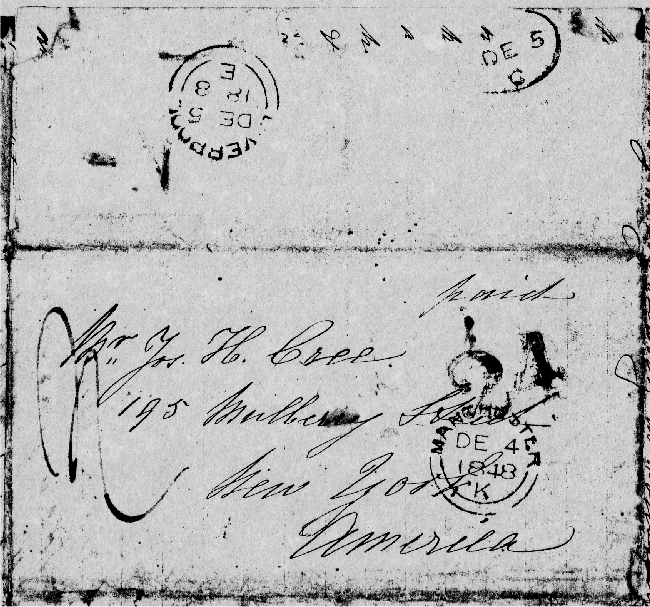 DE 5
C
LIVERPOOL
DE 5
18 8
E
paid
24
Mr. Jos. H. Cree.
195 Mulberry Street
New York
America
MANCHESTER
DE 4
1848
K